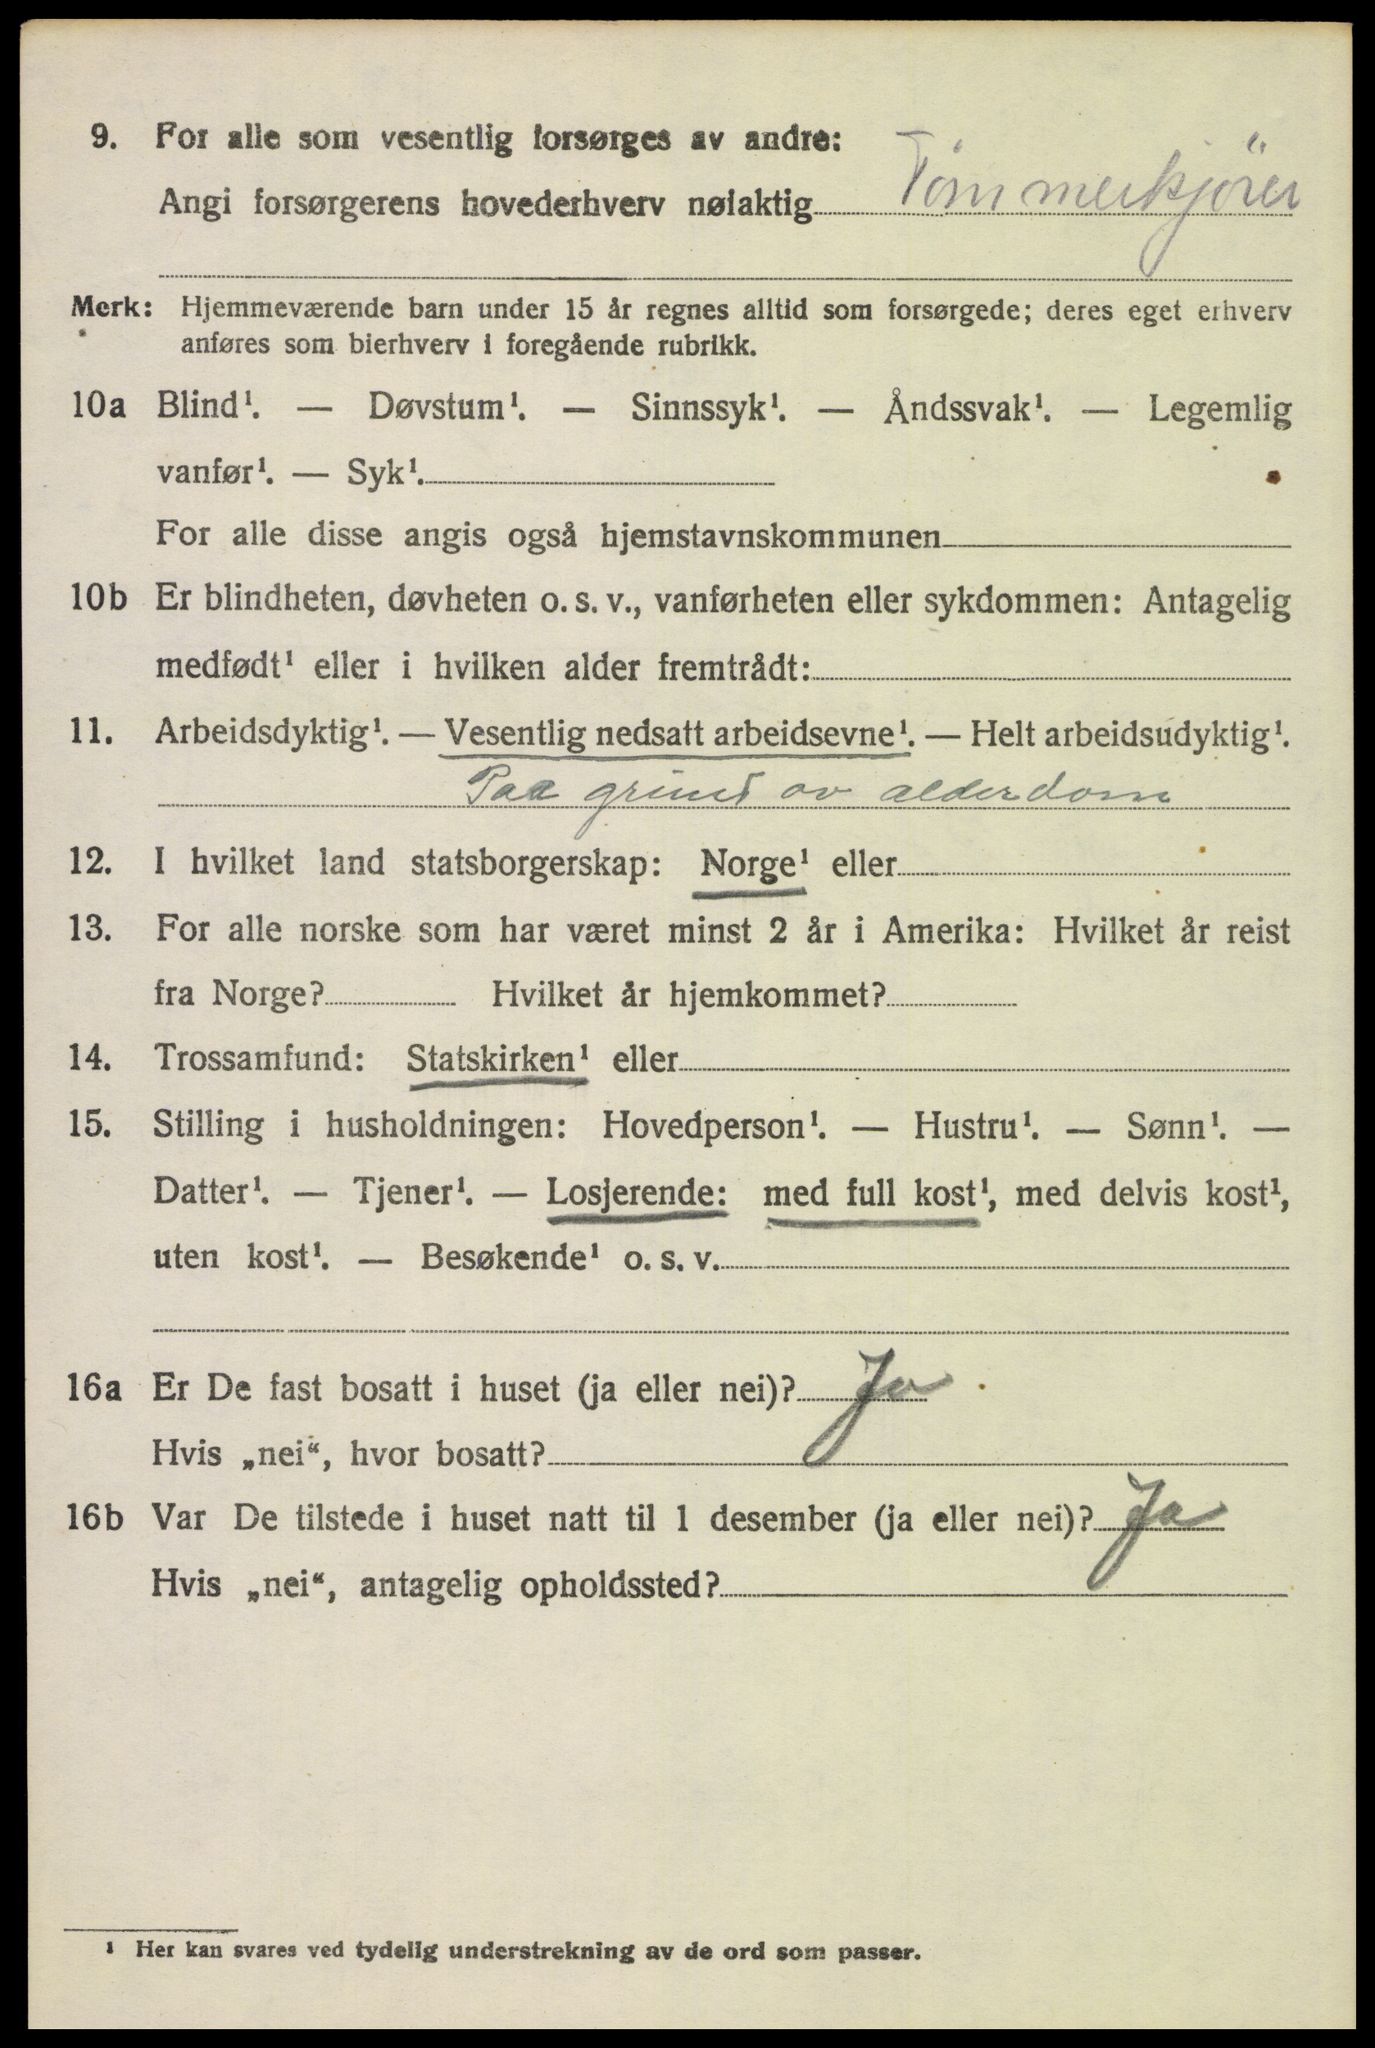 9. For alle som vesentlig forsørges av andre:
Angi forsørgerens hovederhverv nøiaktig Tømmerkjörer
Merk: Hjemmeværende barn under 15 år regnes alltid som forsørgede; deres eget erhverv
anføres som bierhverv i foregående rubrikk.
10a Blind¹. — Døvstum¹. — Sinnssyk¹. — Åndssvak¹. — Legemlig
vanfør¹. — Syk¹.
For alle disse angis også hjemstavnskommunen
10b Er blindheten, døvheten o. s. v., vanførheten eller sykdommen: Antagelig
medfødt¹ eller i hvilken alder fremtrådt:
11. Arbeidsdyktig¹. — Vesentlig nedsatt arbeidsevne¹. — Helt arbeidsudyktig¹.
Paa grund av alderdom
12. I hvilket land statsborgerskap: Norge¹ eller
13. For alle norske som har været minst 2 år i Amerika: Hvilket år reist
fra Norge? Hvilket år hjemkommet?
14. Trossamfund: Statskirken¹ eller
15. Stilling i husholdningen: Hovedperson¹. — Hustru¹. — Sønn¹. —
Datter¹. — Tjener¹. — Losjerende: med full kost¹, med delvis kost¹,
uten kost¹. — Besøkende¹ o. s. v.
16a Er De fast bosatt i huset (ja eller nei)? Ja
Hvis „nei“, hvor bosatt?
16b Var De tilstede i huset natt til 1 desember (ja eller nei)? Ja
Hvis „nei“, antagelig opholdssted?
¹ Her kan svares ved tydelig understrekning av de ord som passer.